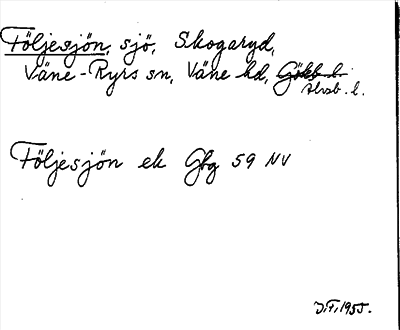 Följesjön, sjö, Skogaryd,
Väne-Ryrs sn, Väne hd, Götb. l.
Älvsb. l.
Följesjön ek Gbg 59 NV
J.F. 1955.